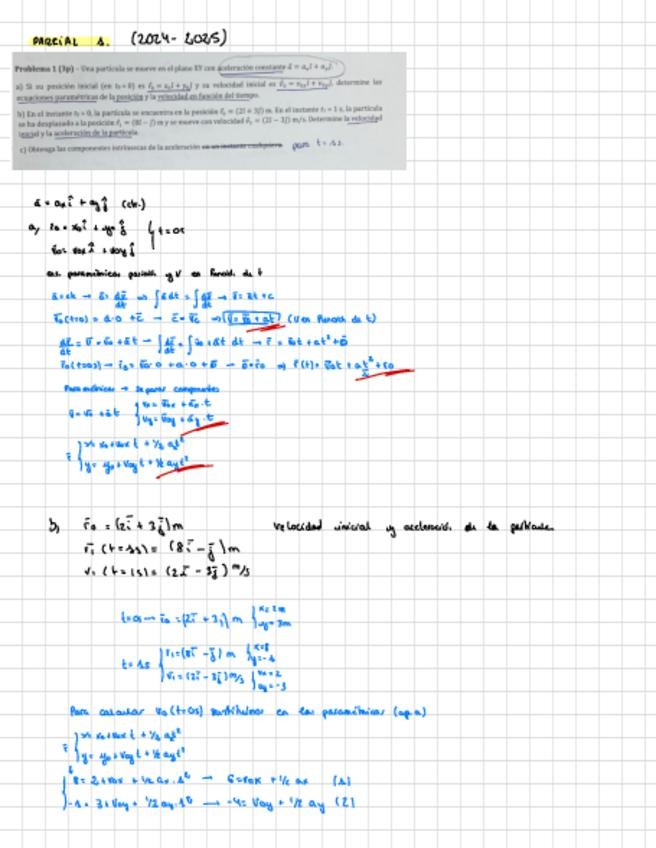 PARCIAL 1. (2024-2025)
Problema 1 (3p) - Una partícula se mueve en el plano XY con aceleración constante a⃗ = aₓi + a_yj.
a) Si su posición inicial (en t₀=0) es r⃗₀ = x₀i + y₀j y su velocidad inicial es v⃗₀ = v₀ₓi + v₀yj, determine las
ecuaciones paramétricas de la posición y la velocidad en función del tiempo.
b) En el instante t₀ = 0, la partícula se encuentra en la posición r⃗₀ = (2i + 3j) m. En el instante t₁ = 1 s, la partícula
se ha desplazado a la posición r⃗₁ = (8i - j) m y se mueve con velocidad v⃗₁ = (2i - 3j) m/s. Determine la velocidad
inicial y la aceleración de la partícula.
c) Obtenga las componentes intrínsecas de la aceleración en un instante cualquiera. para t = 1s.
ā = axî + ayĵ (cte.)
a) r̄o = xoî + yoĵ } t=0s
v̄o = voxî + voyĵ
ecs. paramétricas posición y v en función de t
v̄o(t=0) = a·0 + c̄ → c̄ = v̄o ⇒ v̄ = v̄o + āt (v en función de t)
Paramétricas → Separar componentes
v̄ = v̄o + āt { vx = vox + ax·t
vy = voy + ay·t
r̄ { x = xo + vox t + 1/2 axt²
y = yo + voy t + 1/2 ayt²
b) r̄o = (2ī + 3j̄) m velocidad inicial y aceleración de la partícula
r̄₁ (t=1s) = (8ī - j̄) m
v₁ (t=1s) = (2ī - 3j̄) m/s
t=0s → r̄o = (2ī + 3j) m { x=2m
y=3m
t=1s { r̄₁ = (8ī - j̄) m { x=8
y=-1
v̄₁ = (2ī - 3j̄) m/s { vx=2
Para calcular vo (t=0s) sustituimos en las paramétricas (ap.a)
r̄ { x = xo + vox t + 1/2 axt²
y = yo + voy t + 1/2 ayt²
8 = 2 + vox + 1/2 ax·1² → 6 = vox + 1/2 ax (1)
-1 = 3 + voy + 1/2 ay·1² → -4 = voy + 1/2 ay (2)